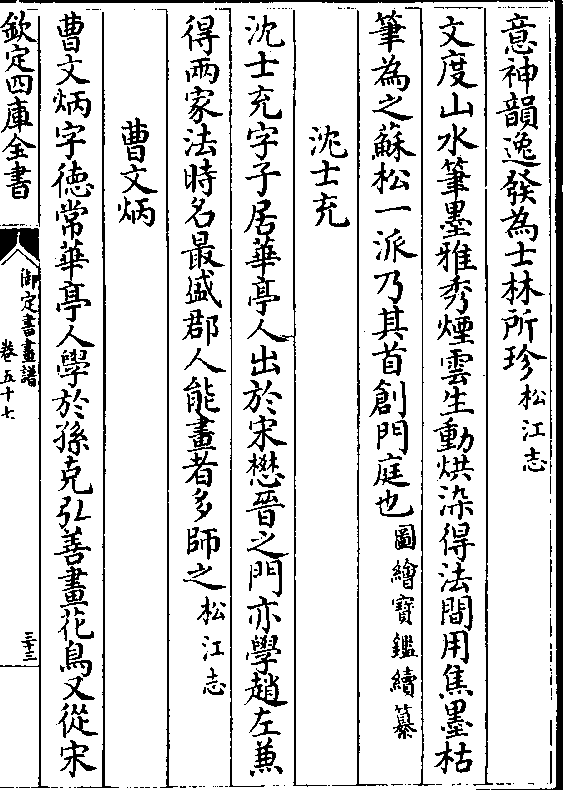 意神韻逸發為士林所珍松江志
文度山水筆墨雅秀煙雲生動烘染得法間用焦墨枯
筆為之蘇松一派乃其首創門庭也圖繪寶鑑續纂
沈士充
沈士充字子居華亭人出於宋懋晉之門亦學趙左兼
得兩家法時名最盛郡人能畫者多師之松江志
曹文炳
曹文炳字徳常華亭人學於孫克弘善畫花鳥又從宋
欽定四庫全書
御定書畫譜
卷五十七
三十三